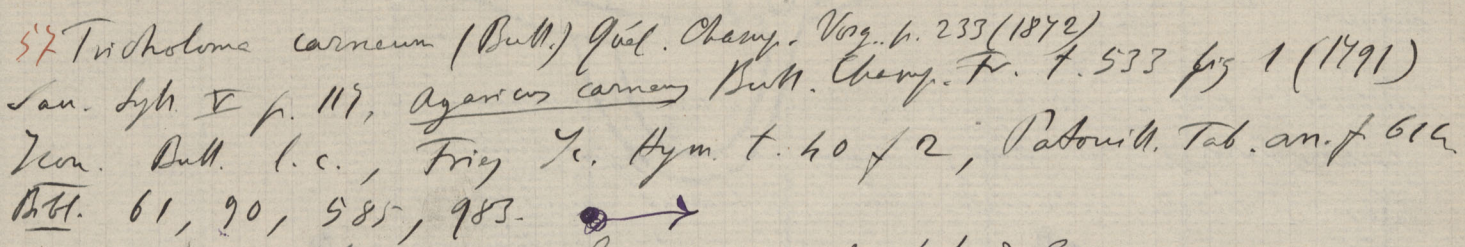 57 Tricholoma carneum (Bull.) Quél. Champ. Vosg. p. 233 (1872)
Sacc. Syll. V p. 117, Agaricus carneus Bull. Champ. Fr. t. 533 fig 1 (1791)
Icon. Bull. l. c., Fries Ic. Hym. t. 40 f 2, Patouill. Tab. an. f.
Bibl. 61, 90, 585, 983.